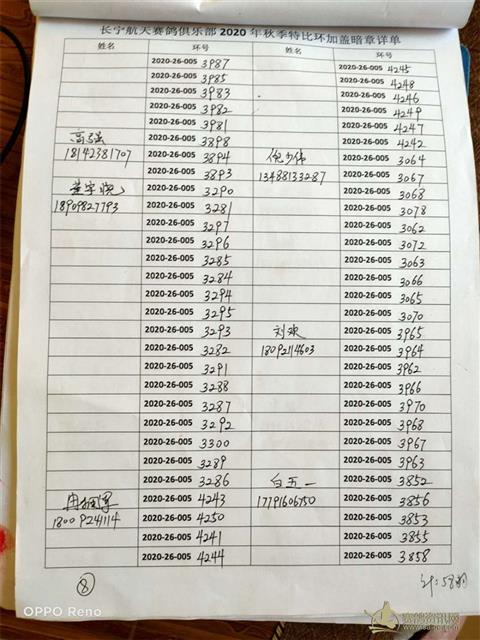 长宁航天赛鸽俱乐部 2020 年秋季特比环加盖暗章详单
姓名 环号 姓名 环号
2020-26-005 3987 2020-26-005 4245
2020-26-005 3985 2020-26-005 4248
2020-26-005 3983 2020-26-005 4246
2020-26-005 3982 2020-26-005 4249
2020-26-005 3981 2020-26-005 4247
高强 2020-26-005 3898 2020-26-005 4242
18142381707 2020-26-005 3894 倪少伟 2020-26-005 3064
2020-26-005 3893 13488133287 2020-26-005 3067
2020-26-005 3290 2020-26-005 3068
18909827793 2020-26-005 3281 2020-26-005 3078
2020-26-005 3297 2020-26-005 3062
2020-26-005 3296 2020-26-005 3072
2020-26-005 3285 2020-26-005 3063
2020-26-005 3284 2020-26-005 3066
2020-26-005 3294 2020-26-005 3065
2020-26-005 3295 2020-26-005 3070
2020-26-005 3293 刘欢 2020-26-005 3965
2020-26-005 3282 18092114603 2020-26-005 3964
2020-26-005 3291 2020-26-005 3962
2020-26-005 3288 2020-26-005 3966
2020-26-005 3287 2020-26-005 3970
2020-26-005 3292 2020-26-005 3968
2020-26-005 3300 2020-26-005 3967
2020-26-005 3289 2020-26-005 3963
2020-26-005 3286 白五一 2020-26-005 3852
2020-26-005 4243 17791606750 2020-26-005 3856
18009241114 2020-26-005 4250 2020-26-005 3853
2020-26-005 4241 2020-26-005 3855
2020-26-005 4244 2020-26-005 3858
8
OPPO Reno